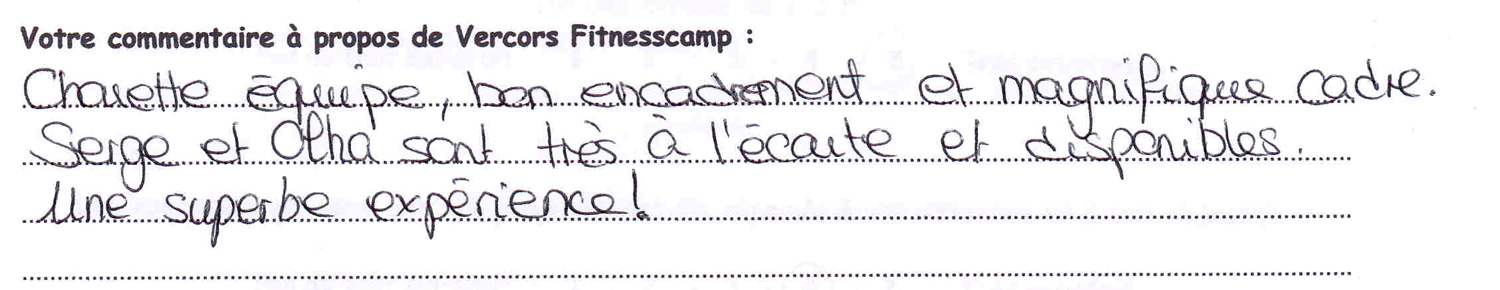 Votre commentaire à propos de Vercors Fitnesscamp :
Chouette équipe, bon encadrement et magnifique cadre.
Serge et Olha sont très à l'écoute et disponibles.
Une superbe expérience!